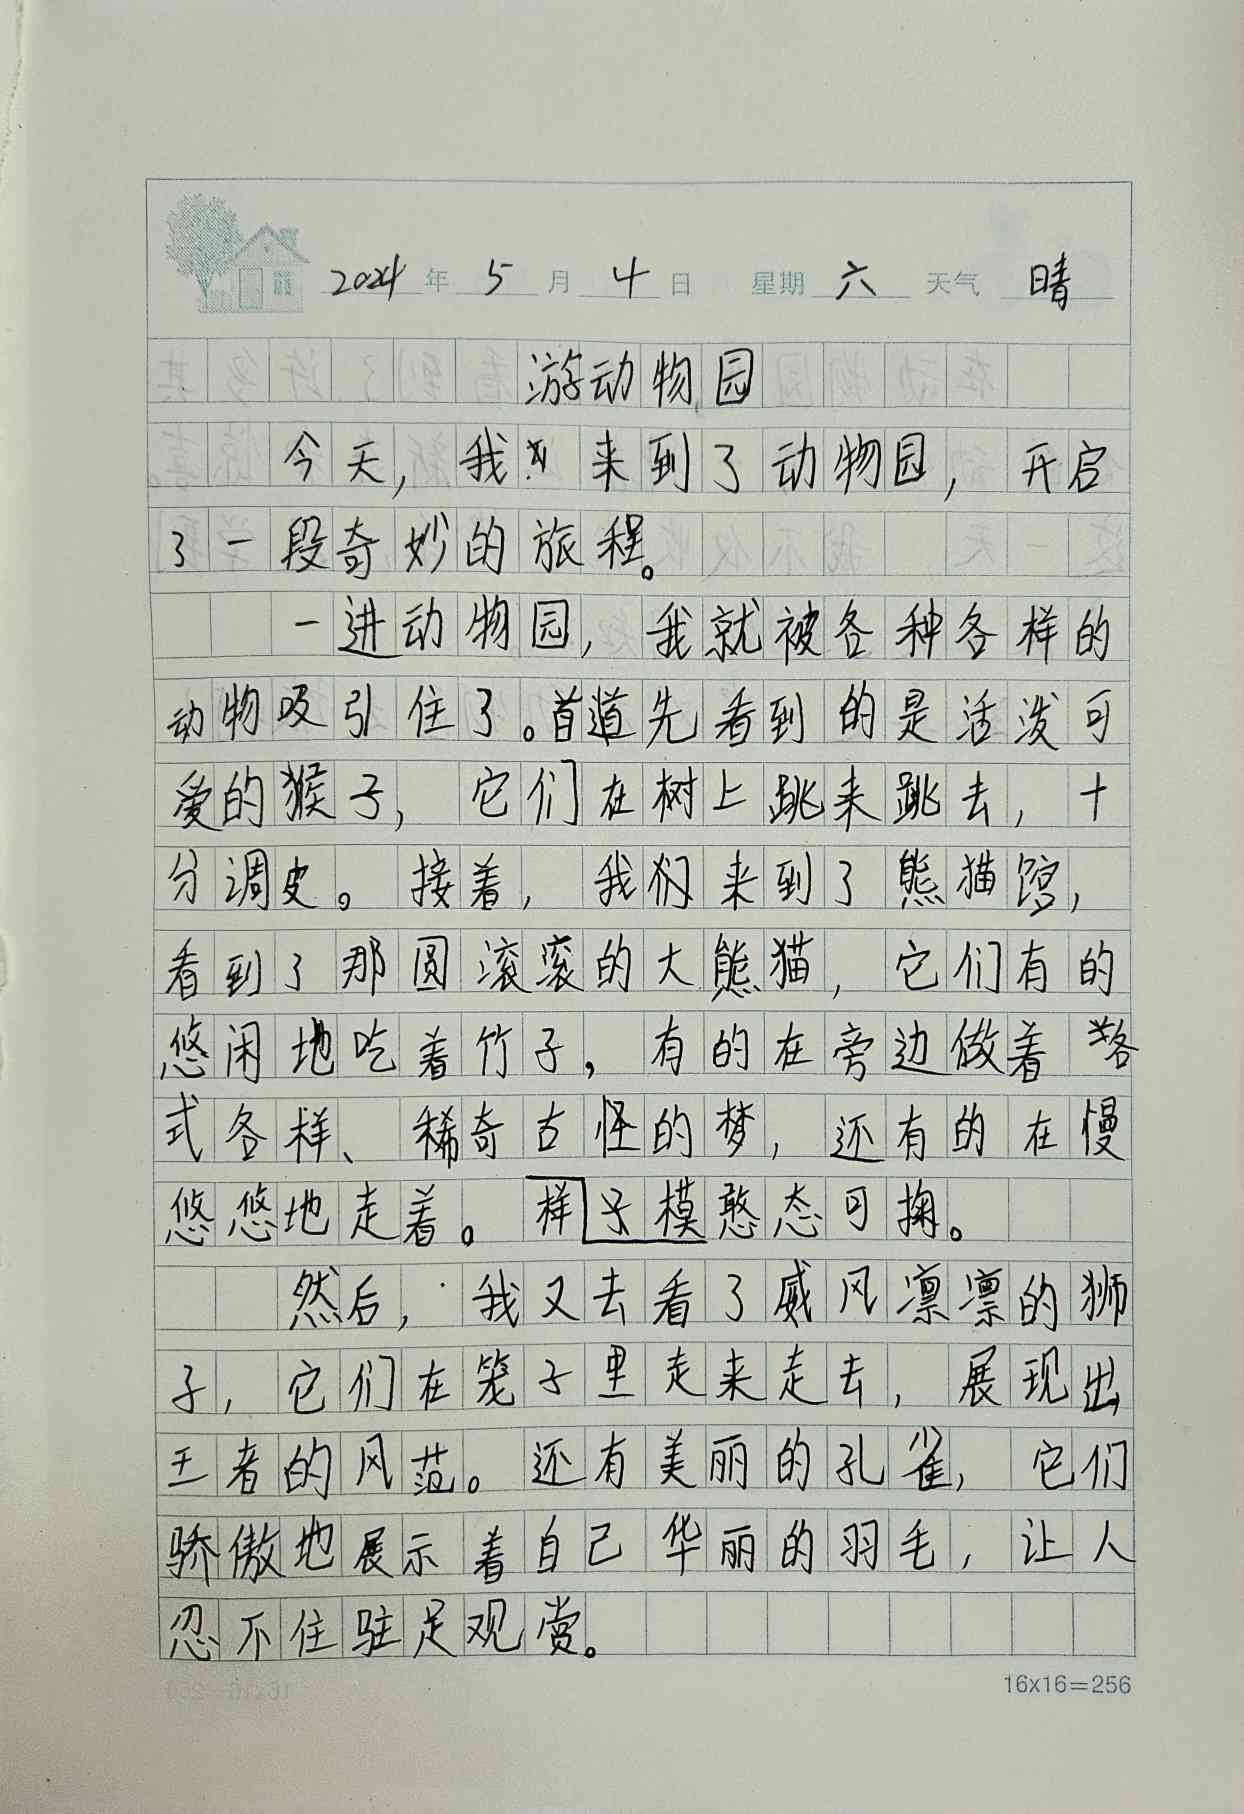 2024年5月4日 星期六 天气 晴
游动物园
今天，我来到了动物园，开启
了一段奇妙的旅程。
一进动物园，我就被各种各样的
动物吸引住了。首道先看到的是活泼可
爱的猴子，它们在树上跳来跳去，十
分调皮。接着，我们来到了熊猫馆，
看到了那圆滚滚的大熊猫，它们有的
悠闲地吃着竹子，有的在旁边做着各
式各样、稀奇古怪的梦，还有的在慢
悠悠地走着。样子模憨态可掬。
然后，我又去看了威风凛凛的狮
子，它们在笼子里走来走去，展现出
王者的风范。还有美丽的孔雀，它们
骄傲地展示着自己华丽的羽毛，让人
忍不住驻足观赏。
16×16=256